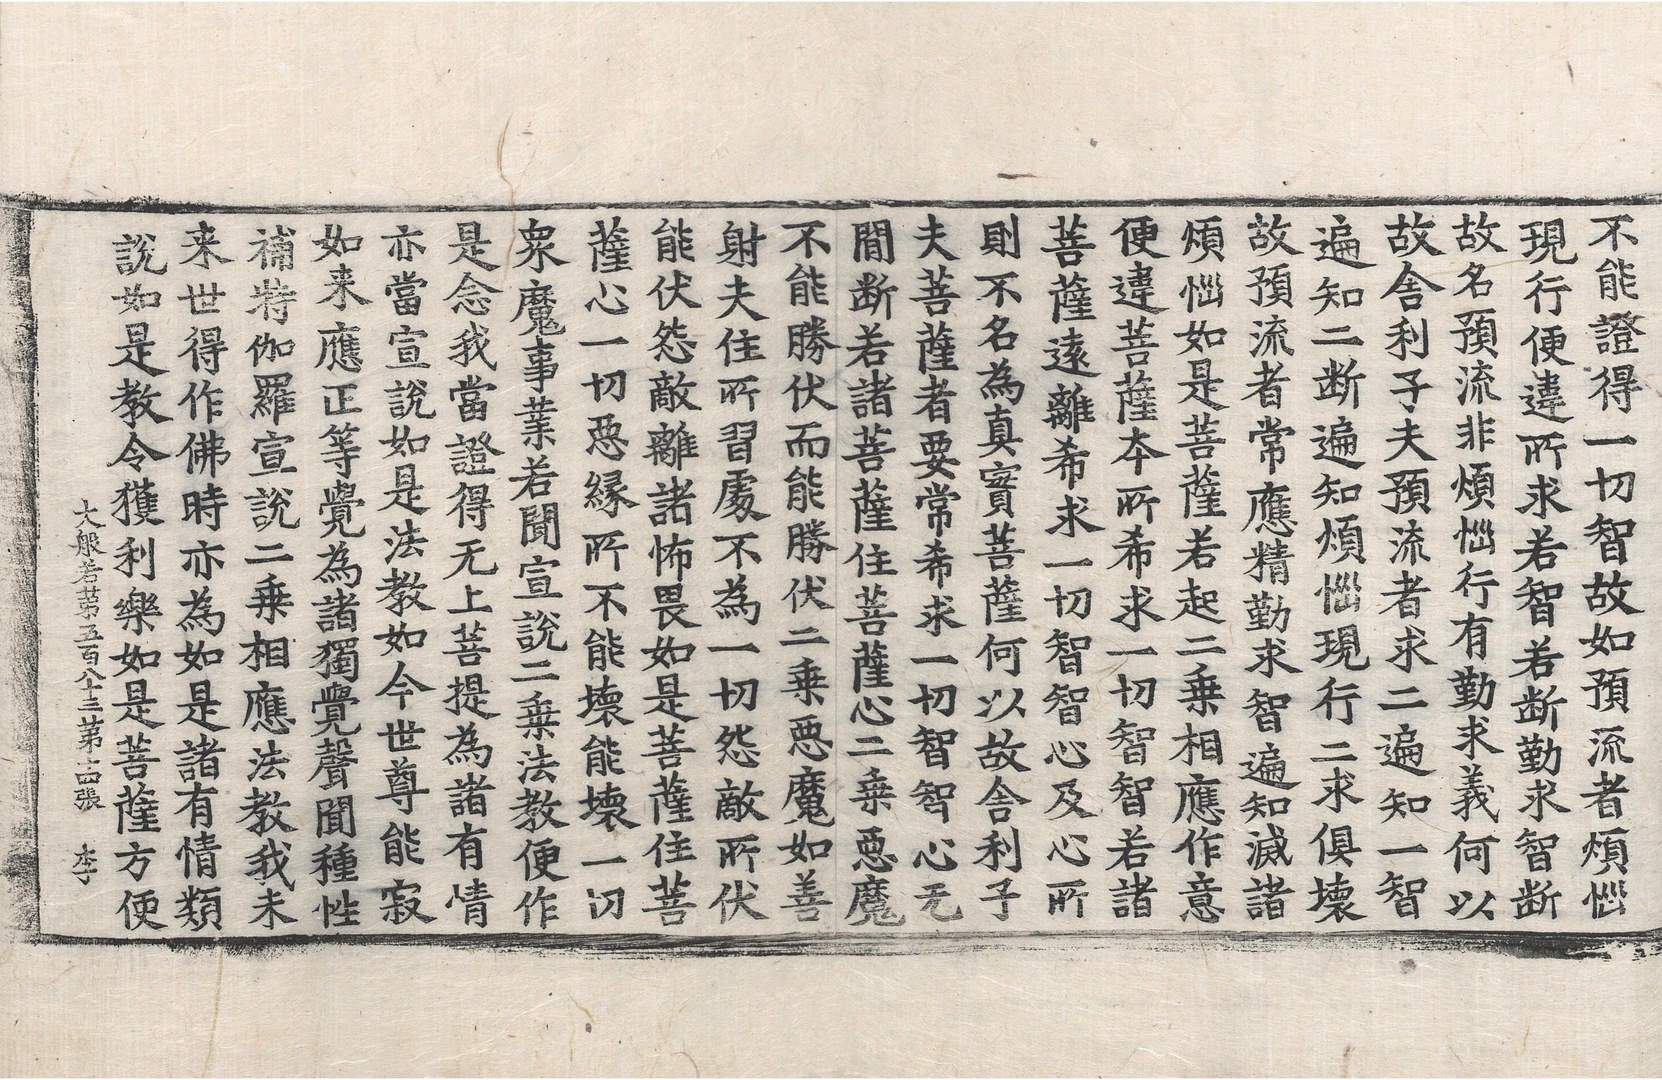 不能證得一切智故如預流者煩惱
現行便違所求若智若断勤求智断
故名預流非煩惱行有勤求義何以
故舍利子夫預流者求二遍知一智
遍知二断遍知煩惱現行二求俱壞
故預流者常應精勤求智遍知滅諸
煩惱如是菩薩若起二乗相應作意
便違菩薩本所希求一切智智若諸
菩薩遠離希求一切智智心及心所
則不名為真實菩薩何以故舍利子
夫菩薩者要常希求一切智智心无
間断若諸菩薩住菩薩心二乗惡魔
不能勝伏而能勝伏二乗惡魔如善
射夫住所習處不為一切怨敵所伏
能伏怨敵離諸怖畏如是菩薩住菩
薩心一切惡縁所不能壞能壞一切
衆魔事業若聞宣說二乗法教便作
是念我當證得无上菩提為諸有情
亦當宣說如是法教如今世尊能寂
如来應正等覺為諸獨覺聲聞種性
補特伽羅宣說二乗相應法教我未
来世得作佛時亦為如是諸有情類
說如是教令獲利樂如是菩薩方便
大般若苐五百八十三苐十四張 李